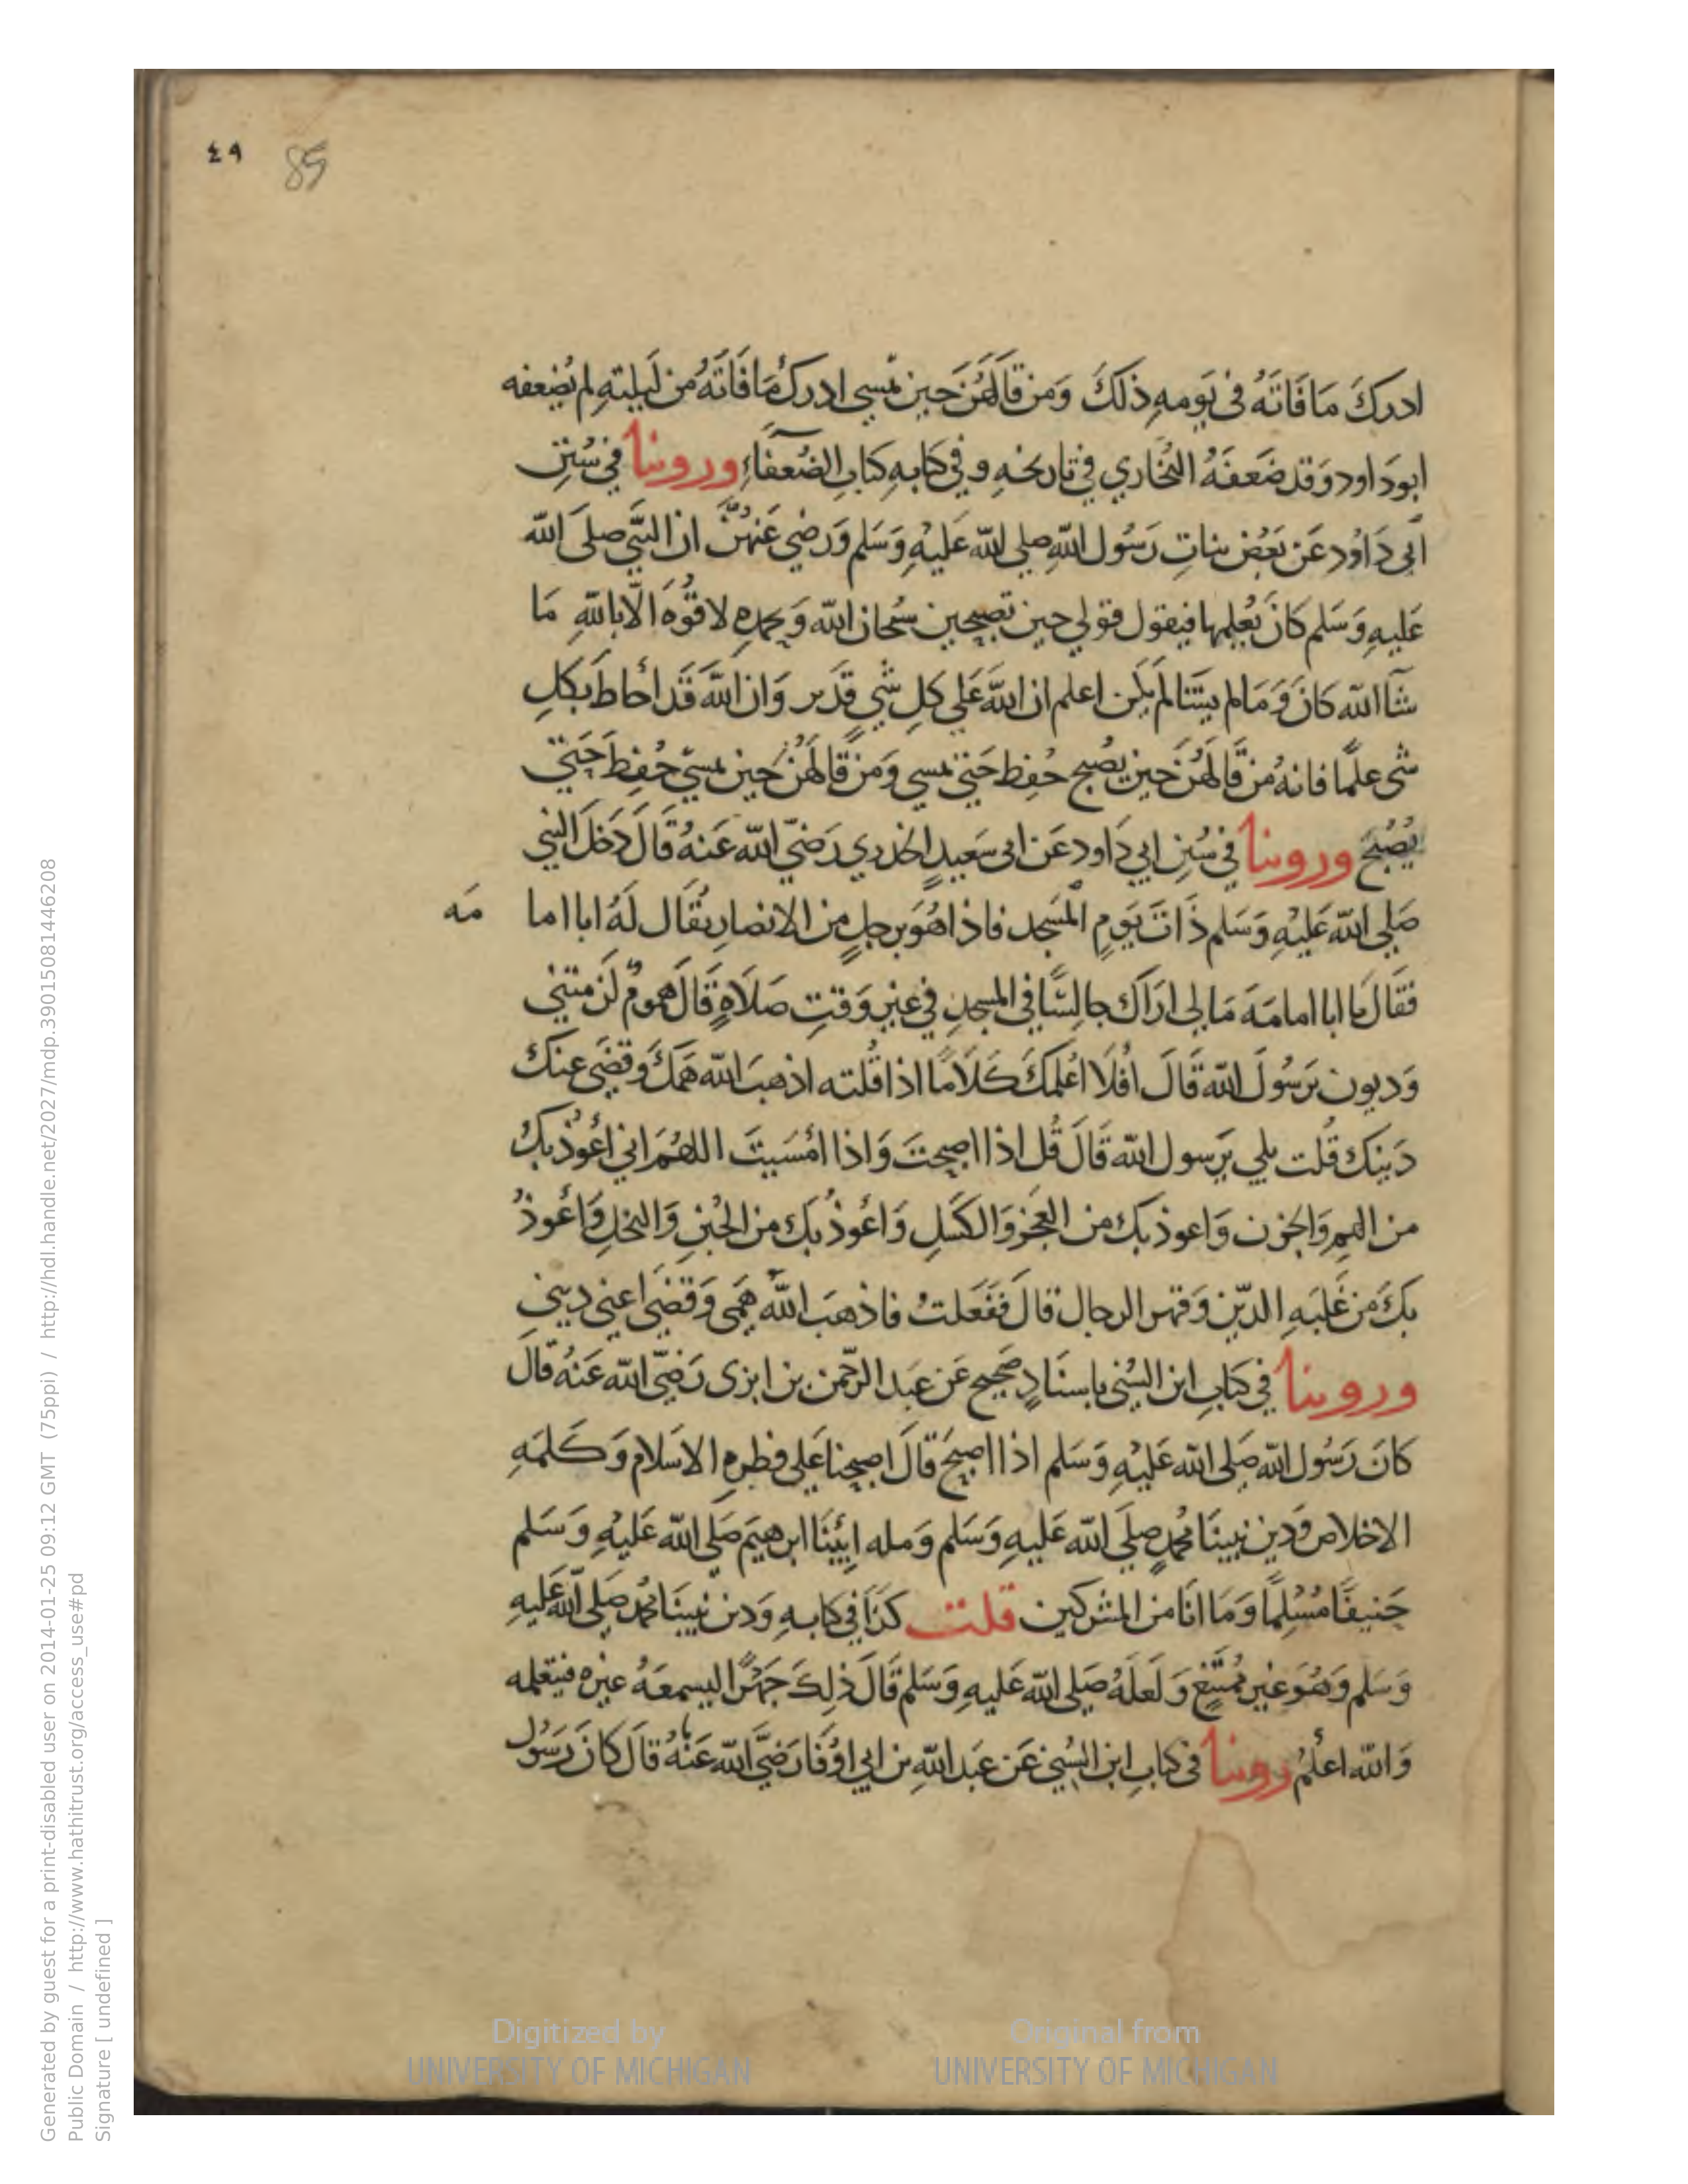 ٤٩ 85
ادركَ مَا فَاتَهُ فى يَومهِ ذلكَ وَمن قالَهُنَ حين تمسي ادركَ مَا فَاتَهُ من لَيلتهِ لم يُضعفه
ابو دَاود وَقد ضَعفَهُ البُخاري في تاريخهِ وفي كتابهِ كتابِ الضُعفَآءِ وروينا في سُننِ
اَبى دَاوُد عَن بَعض بناتِ رَسُول اللهِ صلى الله عَليهِ وَسَلم وَرضي عَنهُنَّ ان النَبي صلى الله
عَليهِ وَسَلم كانَ يُعلمها فيقول قولي حين تصبحين سُبحان الله وَبحمدهِ لا قُوهَ الا بالله مَا
شآ الله كانَ وَمَا لم يشَا لم يَكن اعلم ان اللهَ عَلي كلِ شي قدَير وَان اللهَ قَد أحاط بكلِ
شى علمًا فانهُ من قالهُنَ حين يُصبح حُفِظ حَتي تمسي وَمن قالَهُن حين تمسي حُفظ حَتي
يُصْبحَ وروينا في سُننِ ابي دَاود عَن ابى سَعيدٍ الخدري رَضيَ الله عَنهُ قالَ دَخلَ النبي
صَلي الله عَليهِ وَسَلم ذَاتَ يَومٍ المَسَجد فاذا هُوَ برجلٍ من الانصار يُقَال لَهُ ابا اما مَه
فقَالَ يا ابا امامَهَ مَا لى ارَاكَ جالِسًا في المسجدِ في غير وَقتِ صلَاهٍ قَالَ همومٌ لَزمتني
وَديون يَرسُولَ الله قَالَ افلَا اعُلمكَ كَلَامًا اذا قُلته اذهبَ الله هَمكَ وَقضَى عنكَ
دَينك قُلت بلي يَرسول الله قَالَ قُل اذا اصبحتَ وَاذا امْسَيتَ اللهُمَ اني اعُوذ بكَ
من الهمِ وَالحزن وَاعوذ بكَ من العَجز وَالكَسَلِ وَاعُوذ بكَ من الجُبنِ وَالبخلِ وَاعُوذُ
بكَ من غَلبَهِ الدّين وَقهر الرجال قالَ ففَعَلتُ فاذهبَ اللهُ همى وَقضَى اعني ديني
وروينا في كتابِ ابن السُنى باسنَادٍ صَحيح عَن عَبَد الرَّحمن بن ابزى رَضيَ الله عَنهُ قالَ
كانَ رَسُول الله صَلى الله عَليهِ وَسَلم اذا اصبحَ قالَ اصبحنا عَلى فطرهِ الاسَلام وَكلمَهِ
الاخلاص وَدين نبينَا مُحمدٍ صلَى الله عَليهِ وَسَلم وَمله ابيْنَا ابرهيَم صَلي الله عَليهِ وَسَلم
حَنيفًا مُسْلمًا وَمَا انَا من المشركين قلت كذَا في كتابهِ وَدين نبينَا مُحمد صَلى الله عَليهِ
وَسَلم وَهُوَ غير مُمتَنع وَلَعَلهُ صَلى الله عَليهِ وَسَلم قَالَ ذلِكَ جَهرًا ليسمعَهُ غيره فيتعلمه
وَالله اعلمُ روينا في كتابِ ابن السُني عَن عَبد اللهِ بن ابي اوُفا رَضيَ الله عَنهُ قالَ كانَ رَسُول
Digitized by
UNIVERSITY OF MICHIGAN
Original from
UNIVERSITY OF MICHIGAN
Generated by guest for a print-disabled user on 2014-01-25 09:12 GMT (75ppi) / http://hdl.handle.net/2027/mdp.39015081446208
Public Domain / http://www.hathitrust.org/access_use#pd
Signature [ undefined ]